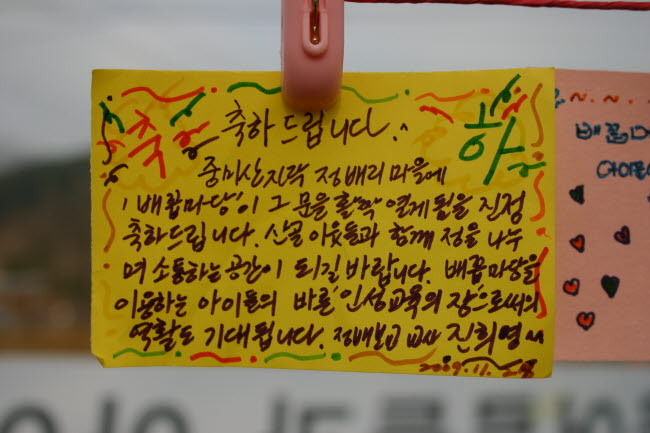 축 축하 드립니다.^ 하
중미산자락 정배리 마을에
'배꼽마당'이 그 문을 활짝 열게 됨을 진정
축하드립니다. 산골 이웃들과 함께 정을 나누
며 소통하는 공간이 되길 바랍니다. 배꼽마당을
이용하는 아이들의 바른 '인성교육의 장'으로써의
역할도 기대됩니다. 정배분교 교사 진희영
2009.11.28